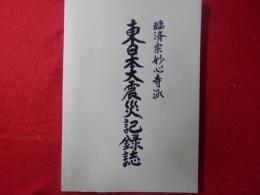 臨済宗妙心寺派
東日本大震災記録誌